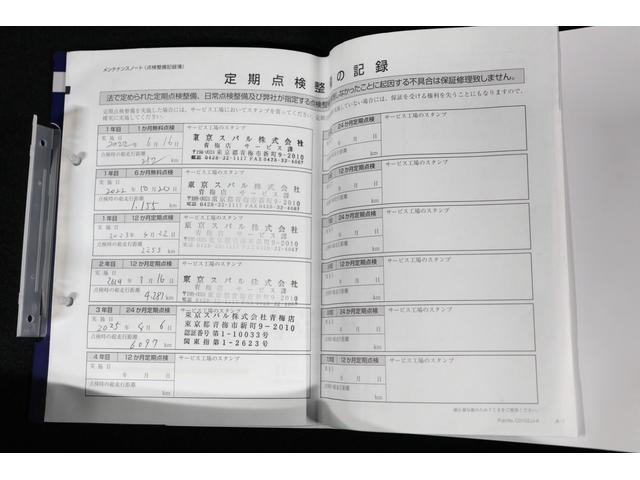 メンテナンスノート(点検整備記録簿)
定期点検整
の記録
法で定められた定期点検整備、日常点検整備及び弊社が指定する点検整
しなかったことに起因する不具合は保証修理致しません。
定期点検整備を実施した場合には、サービス工場においてスタンプを貰ってください。
確実に実施してください。
していない場合には、保証を受ける権利を失うことにもなりますので、
1年目 1か月無料点検 サービス工場のスタンプ
実施日
2022年6月16日
点検時の総走行距離
257 km
東京スバル株式会社
青梅店 サービス課
〒198-0024 東京都青梅市新町9-2010
電話 0428-32-1117 FAX 0428-32-4067
1年目 6か月無料点検 サービス工場のスタンプ
実施日
2022年10月20日
点検時の総走行距離
1,155 km
東京スバル株式会社
青梅店 サービス課
〒198-0024 東京都青梅市新町9-2010
電話 0428-32-1117 FAX 0428-32-4067
1年目 12か月定期点検 サービス工場のスタンプ
実施日
2023年4月22日
点検時の総走行距離
2253 km
東京スバル株式会社
青梅店 サービス課
2年目 12か月定期点検 サービス工場のスタンプ
実施日
2024年3月16日
点検時の総走行距離
4,281 km
東京スバル株式会社
青梅店 サービス課
3年目 24か月定期点検 サービス工場のスタンプ
実施日
2025年4月6日
点検時の総走行距離
6097 km
東京スバル株式会社青梅店
東京都青梅市新町9-2010
認証番号第1-10033号
関東指第1-2623号
4年目 12か月定期点検 サービス工場のスタンプ
実施日
年 月 日
点検時の総走行距離
km
24か月定期点検 サービス工場のスタンプ
年 月 日
km
12か月定期点検 サービス工場のスタンプ
年 月 日
km
サービス工場のスタンプ
年 月 日
km
12か月定期点検 サービス工場のスタンプ
年 月 日
km
24か月定期点検 サービス工場のスタンプ
年 月 日
km
12か月定期点検 サービス工場のスタンプ
年 月 日
km